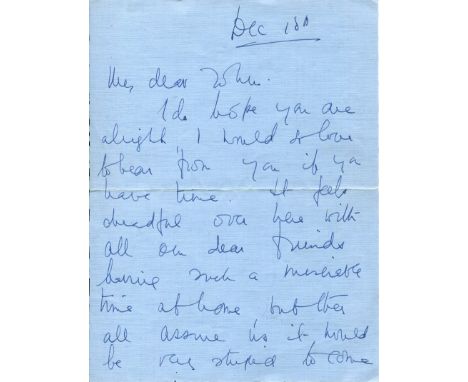 Dec 18th
My dear John.
I do hope you are
alright, I would so love
to hear from you if you
have time. It feels
dreadful over here with
all our dear friends
having such a miserable
time at home, but they
all assure us it would
be very stupid to come